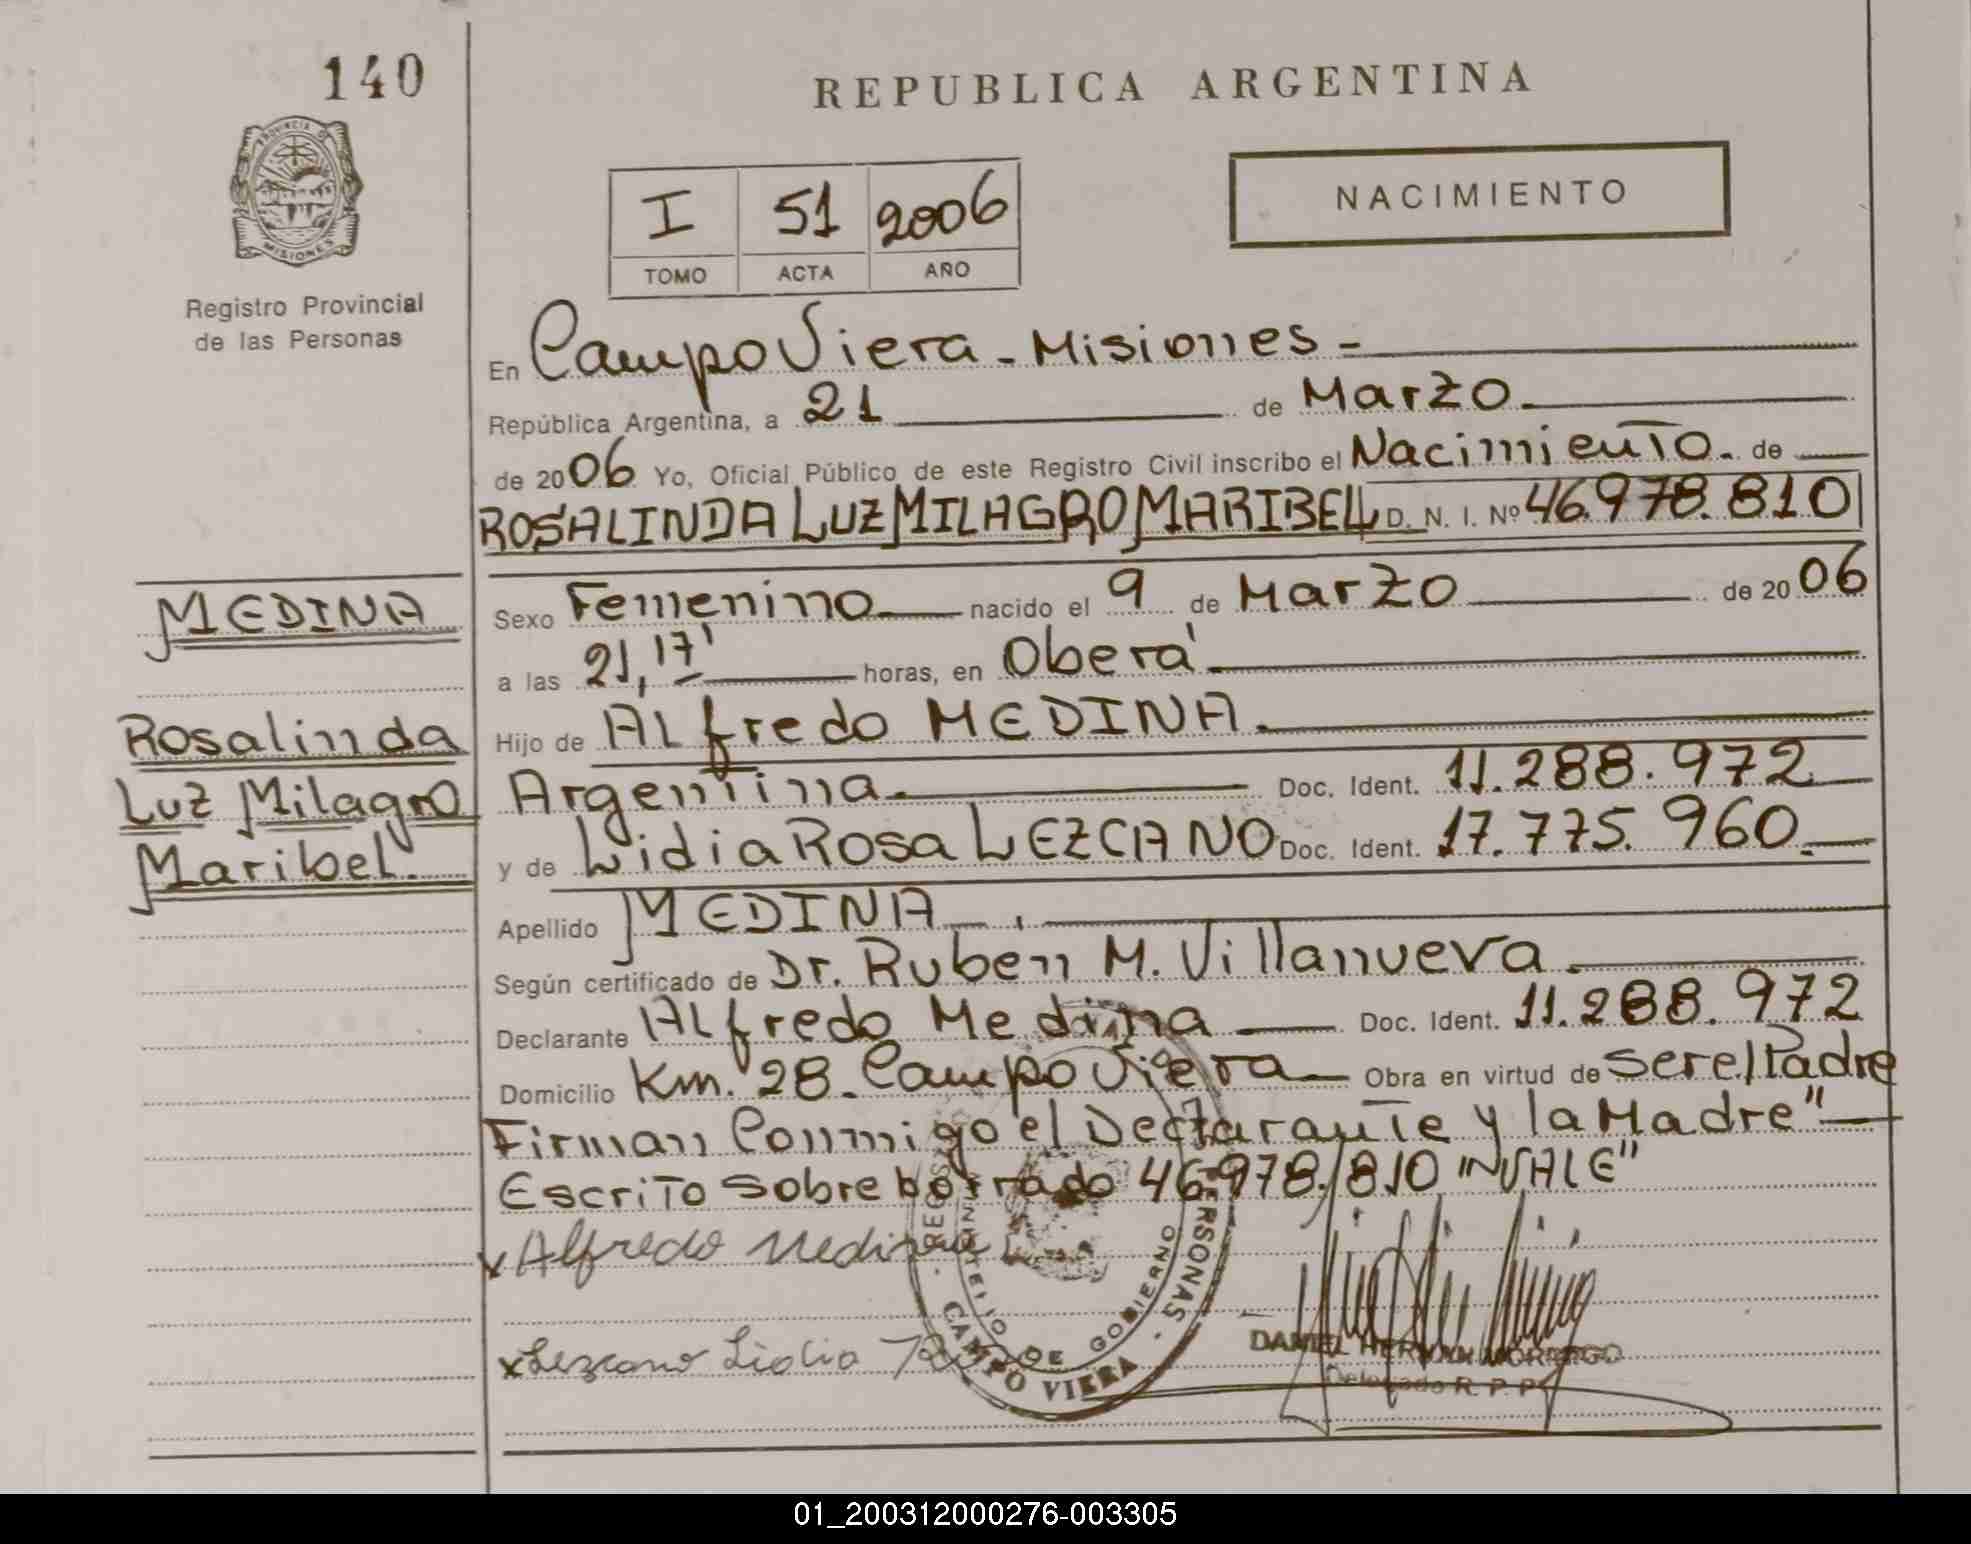 140
REPUBLICA ARGENTINA
PROVINCIA DE
MISIONES
Registro Provincial
de las Personas
I 51 2006
TOMO ACTA AÑO
NACIMIENTO
En Campo Viera - Misiones -
República Argentina, a 21 de Marzo
de 2006 Yo, Oficial Público de este Registro Civil inscribo el Nacimiento de
ROSALINDA LUZ MILAGRO MARIBEL D. N. I. Nº 46.978.810
MEDINA
Rosalinda
Luz Milagro
Maribel.
Sexo Femenino nacido el 9 de Marzo de 2006
a las 21,17' horas, en Oberá
Hijo de Alfredo MEDINA
Argentina Doc. Ident. 11.288.972
y de Lidia Rosa LEZCANO Doc. Ident. 17.775.960
Apellido MEDINA
Según certificado de Dr. Ruben M. Villanueva
Declarante Alfredo Medina Doc. Ident. 11.288.972
Domicilio Km. 28. Campo Viera Obra en virtud de ser el Padre
Firman Conmigo el Declarante y la Madre"
Escrito sobre borrado 46.978.810 "VALE"
x Alfredo Medina
x Lezcano Lidia
PERSONAS
DE GOBIERNO
CAMPO VIERA
DANIEL HERNAN
Delegado R. P. P.
01_200312000276-003305